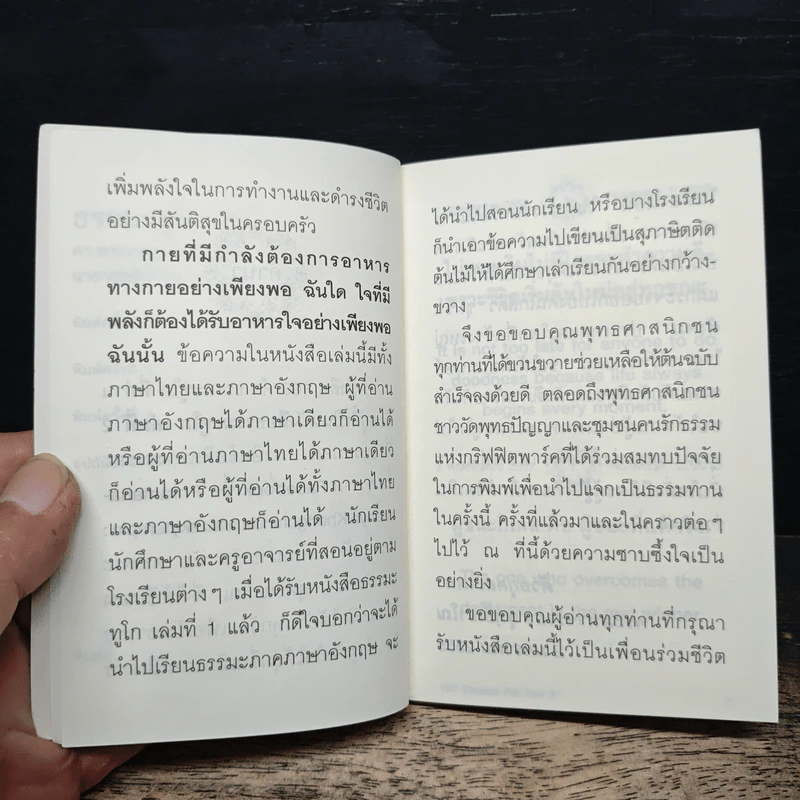 เพิ่มพลังใจในการทำงานและดำรงชีวิต
อย่างมีสันติสุขในครอบครัว
กายที่มีกำลังต้องการอาหาร
ทางกายอย่างเพียงพอ ฉันใด ใจที่มี
พลังก็ต้องได้รับอาหารใจอย่างเพียงพอ
ฉันนั้น ข้อความในหนังสือเล่มนี้มีทั้ง
ภาษาไทยและภาษาอังกฤษ ผู้ที่อ่าน
ภาษาอังกฤษได้ภาษาเดียวก็อ่านได้
หรือผู้ที่อ่านภาษาไทยได้ภาษาเดียว
ก็อ่านได้หรือผู้ที่อ่านได้ทั้งภาษาไทย
และภาษาอังกฤษก็อ่านได้ นักเรียน
นักศึกษาและครูอาจารย์ที่สอนอยู่ตาม
โรงเรียนต่างๆ เมื่อได้รับหนังสือธรรมะ
ทูโก เล่มที่ 1 แล้ว ก็ดีใจบอกว่าจะได้
นำไปเรียนธรรมะภาคภาษาอังกฤษ จะ
ได้นำไปสอนนักเรียน หรือบางโรงเรียน
ก็นำเอาข้อความไปเขียนเป็นสุภาษิตติด
ต้นไม้ให้ได้ศึกษาเล่าเรียนกันอย่างกว้าง-
ขวาง
จึงขอขอบคุณพุทธศาสนิกชน
ทุกท่านที่ได้ขวนขวายช่วยเหลือให้ต้นฉบับ
สำเร็จลงด้วยดี ตลอดถึงพุทธศาสนิกชน
ชาววัดพุทธปัญญาและชุมชนคนรักธรรม
แห่งกริฟฟิตพาร์คที่ได้ร่วมสมทบปัจจัย
ในการพิมพ์เพื่อนำไปแจกเป็นธรรมทาน
ในครั้งนี้ ครั้งที่แล้วมาและในคราวต่อๆ
ไปไว้ ณ ที่นี้ด้วยความซาบซึ้งใจเป็น
อย่างยิ่ง
ขอขอบคุณผู้อ่านทุกท่านที่กรุณา
รับหนังสือเล่มนี้ไว้เป็นเพื่อนร่วมชีวิต